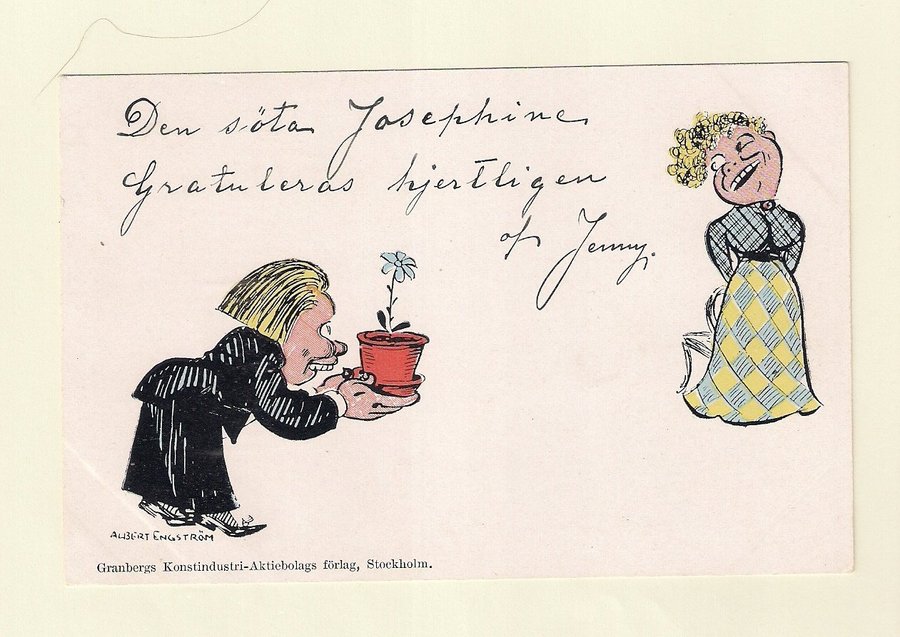 Den söta Josephine
Gratuleras hjertligen
af Jenny.
ALBERT ENGSTRÖM
Granbergs Konstindustri-Aktiebolags förlag, Stockholm.